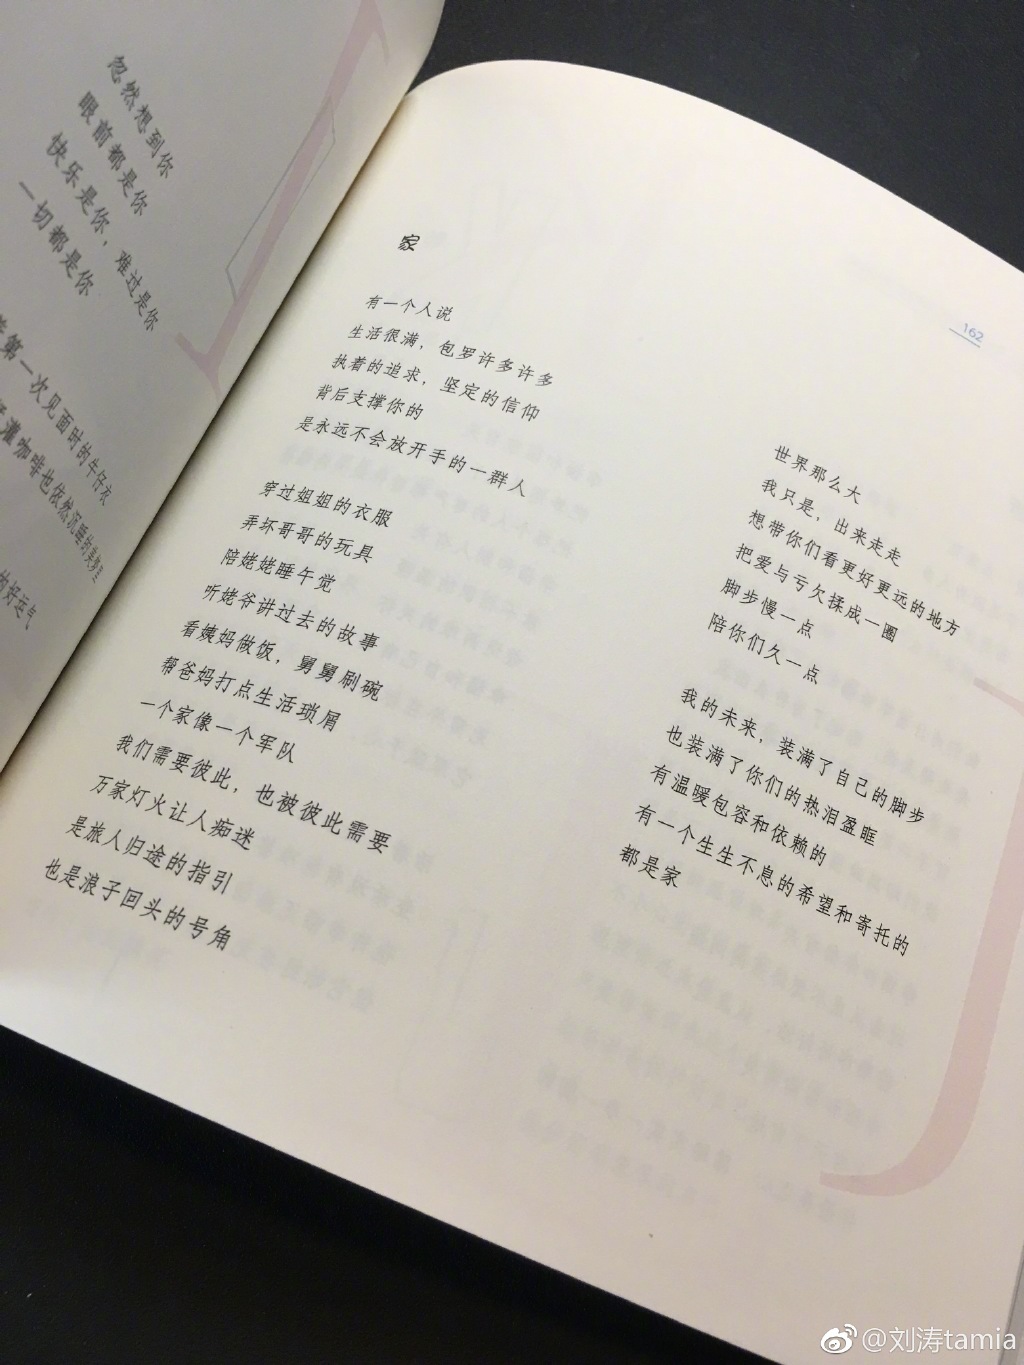 忽然想到你
眼前都是你
快乐是你，难过是你
一切都是你
第一次见面时的牛仔衣
灌咖啡也依然沉睡的
的好运气
家
有一个人说
生活很满，包罗许多许多
执着的追求，坚定的信仰
背后支撑你的
是永远不会放开手的一群人
穿过姐姐的衣服
弄坏哥哥的玩具
陪姥姥睡午觉
听姥爷讲过去的故事
看姨妈做饭，舅舅刷碗
帮爸妈打点生活琐屑
一个家像一个军队
我们需要彼此，也被彼此需要
万家灯火让人痴迷
是旅人归途的指引
也是浪子回头的号角
162
世界那么大
我只是，出来走走
想带你们看更好更远的地方
把爱与亏欠揉成一圈
脚步慢一点
陪你们久一点
我的未来，装满了自己的脚步
也装满了你们的热泪盈眶
有温暖包容和依赖的
有一个生生不息的希望和寄托的
都是家
@刘涛tamia